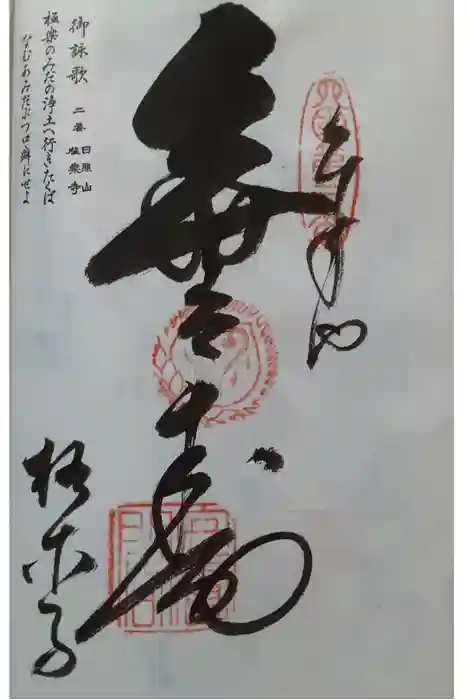 奉納
無量寿
御詠歌 二番 日照山 極樂寺
極楽のみだの浄土へ行きたくば
なむあみだぶつ口癖にせよ
極楽寺